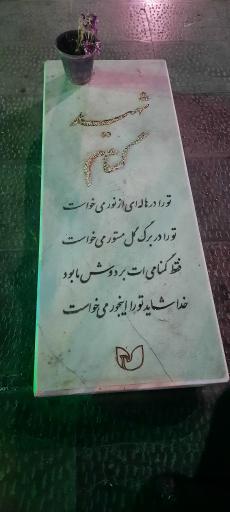 شهید
گمنام
تو را در هاله ای از نور می خواست
تو را در برگ گل مستور می خواست
فقط گمنامی ات بر دوش ما بود
خدا شاید تو را اینجور می خواست